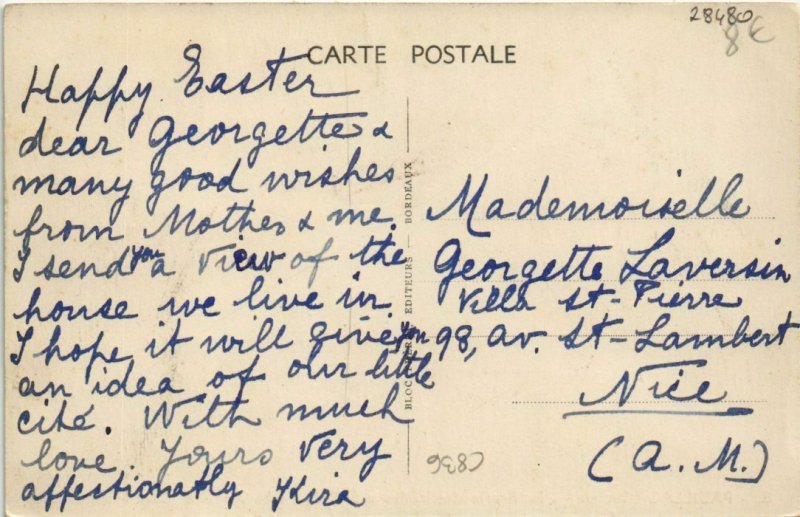 28480
8€
CARTE POSTALE
Happy Easter
dear Georgette &
many good wishes
from Mother & me.
I send you a view of the
house we live in.
I hope it will give you
an idea of our little
cité. With much
love. Yours very
affectionatly Kira
BORDEAUX
EDITEURS
Mademoiselle
Georgette Laversin
Villa St-Pierre
98, av. St-Lambert
Nice
(A. M.)
C836